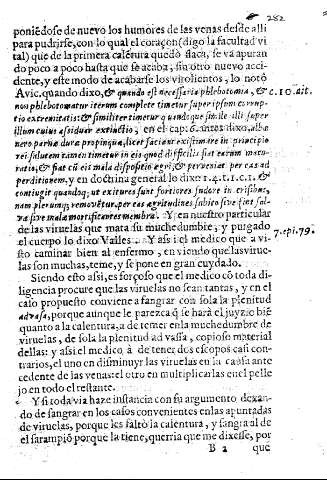 282
poniẽdose de nuevo los humores de las venas desde alli
para pudrirse, con lo qual el coraçon (digo la facultad vi
tal) que de la primera calẽtura quedó flaca, se va apuran
do poco a poco hasta que se acaba, sin otro nuevo acci-
dente, y este modo de acabarse los virolientos, lo notò
Avic. quando dixo, & quando est necessaria phlebotomia, &
c. 10. cit.
nos phlebotomatur iterum complete timetur super ipsum corrup-
tio extremitatis: & similiter timetur quandoque simile illi super
illum cuius assiduatur extinctio; en el cap. 6. antes dixo, alba
nero parua dura propinqua, licet faciant existimare in principio
rei salutem tamen timetur in eis quod difficilis fiat earum matu-
ratio, & fiat cũ eis mala dispositio agri; & perveniat per eas ad
perditionem, y en doctrina general lo dixo 1.4. t. 1. c. 1. &
contingit quandoq; ut exitures sunt fortiores sudore in crisibus,
nam plerumq; removẽtur, per eas agritudines subito sive fiat sal-
va sive mala mortificantes membra. Y en nuestro particular
de las viruelas que mata su muchedumbre, y purgado
el cuerpo lo dixo Valles. Y assi el medico que a vi-
7. epi. 79.
sto caminar bien al enfermo, en viendo que las virue-
las son muchas, teme, y se pone en gran cuydado.
Siendo esto assi, es forçoso que el medico cõ toda di-
ligencia procure que las viruelas no seàn tantas, y en el
caso propuesto conviene a sangrar con sola la plenitud
advasa, porque aunque le parezca q̃ se hará el juyzio biẽ
quanto a la calentura, a de temer en la muchedumbre de
viruelas, de sola la plenitud ad vasa, copioso material
dellas: y assi el medico à de tener dos escopos casi con-
trarios, el uno en disminuyr las viruelas en la causa ante
cedente de las venas: el otro en multiplicarlas en el pelle
jo en todo el restante.
Y si toda via haze instancia con su argumento dexan-
do de sangrar en los casos convenientes en las apuntadas
de viruelas, porque les faltò la calentura, y sangra al de
el sarampiõ porque la tiene, querria que me dixesse, por
B 2 que